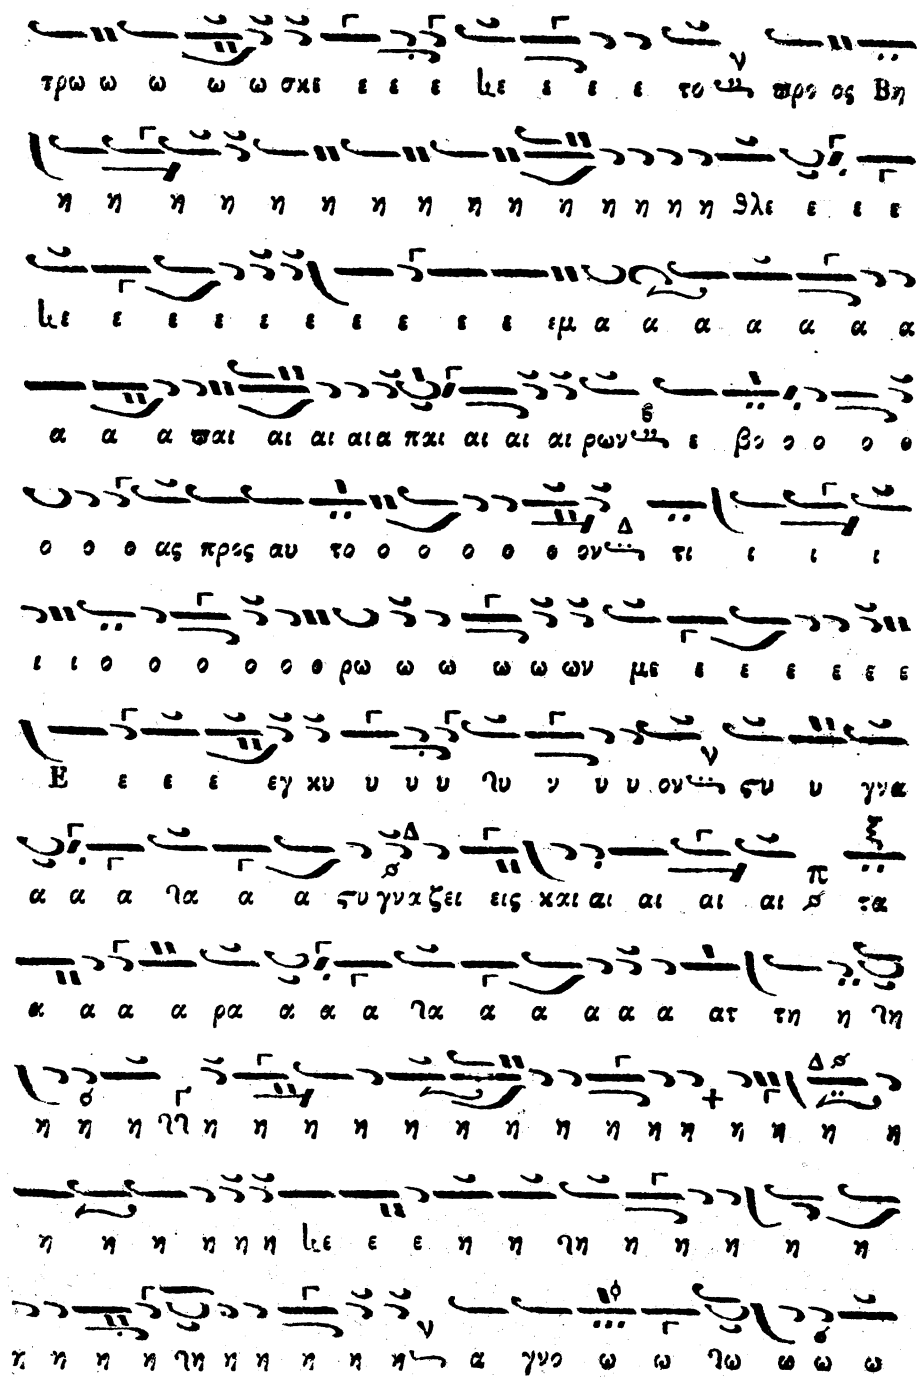 τρω ω ω ω ω σκε ε ε ε κε ε ε ε το προ ος Βη
η η η η η η η η η η η η η η θλε ε ε ε
κε ε ε ε ε ε ε ε ε ε εμ α α α α α α α
α α α παι αι αι αι α παι αι αι αι ρων ε βο ο ο ο ο
ο ο ο ας προς αυ το ο ο ο ο ο ον τι ι ι ι
ι ι ο ο ο ο ο ο ρω ω ω ω ω ων με ε ε ε ε ε ε
Ε ε ε ε εγ κυ υ υ υ υ υ υ υ ον στυ υ γνα
α α α α α α στυ γνα ζει εις και αι αι αι αι τα
α α α α ρα α α α α α α α α α ατ τη η η
η η η η η η η η η η η η η η η η η
η η η η η η κε ε ε η η η η η η η η
η η η η η η η η η η α γνο ω ω ω ω ω ω